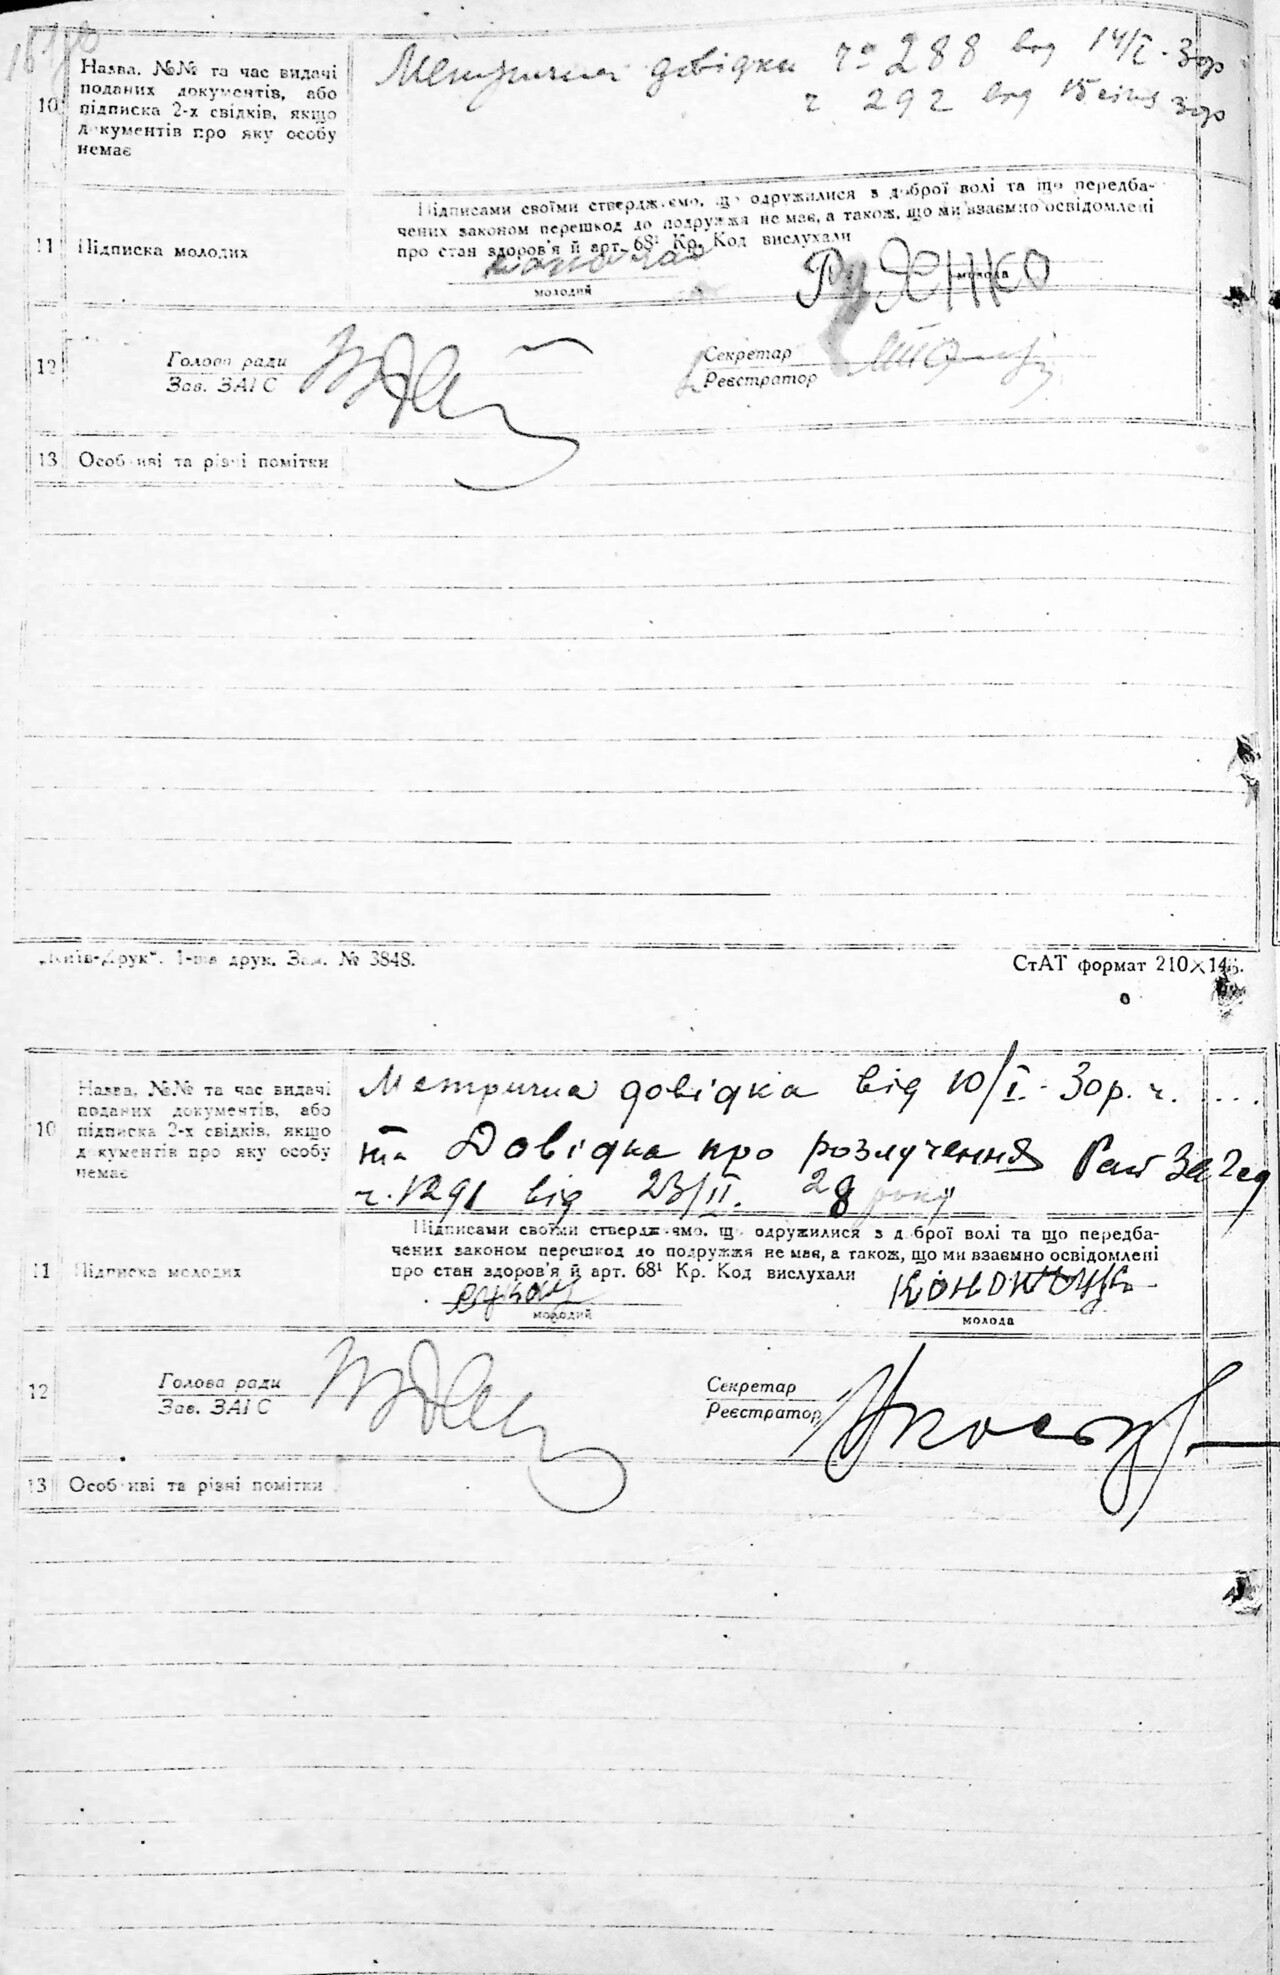 10 Назва, №№ та час видачі
поданих документів, або
підписка 2-х свідків, якщо
документів про яку особу
немає
Метрична довідки ч° 288 від 14/I - 30р
ч 292 від 15 січня 30р
Підписами своїми стверджуємо, що одружилися з доброї волі та що передба-
чених законом перешкод до подружжя не має, а також, що ми взаємно освідомлені
про стан здоров'я й арт. 68¹ Кр. Код вислухали
11 Підписка молодих
молодий молода
12 Голова ради Секретар
Зав. ЗАГС Реєстратор
13 Особливі та різні помітки
„Київ-Друк“. 1-ша друк. Зам. № 3848. СтАТ формат 210×148.
10 Назва, №№ та час видачі
поданих документів, або
підписка 2-х свідків, якщо
документів про яку особу
немає
Метрична довідка від 10/I - 30р. ч. ....
та Довідка про розлучення
ч. 1291 від 23/II. 28 року
Підписами своїми стверджуємо, що одружилися з доброї волі та що передба-
чених законом перешкод до подружжя не має, а також, що ми взаємно освідомлені
про стан здоров'я й арт. 68¹ Кр. Код вислухали
11 Підписка молодих
молодий молода
12 Голова ради Секретар
Зав. ЗАГС Реєстратор
13 Особливі та різні помітки